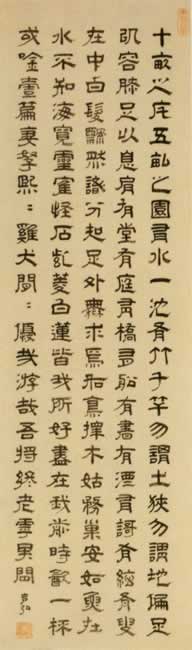 十畝之宅五畝之園有水一池有竹千竿勿謂土狹勿謂地偏足
以容膝足以息肩有堂有庭有橋有船有書有酒有歌有絃有叟
在中白髮飄然識分知足外無求焉如鳥擇木姑務巢安如在
不知海寬靈怪石紫菱白蓮皆我所好盡在我前時飲一杯
或吟壹篇妻孥熙：雞犬閒：優哉游哉吾將終老乎其間